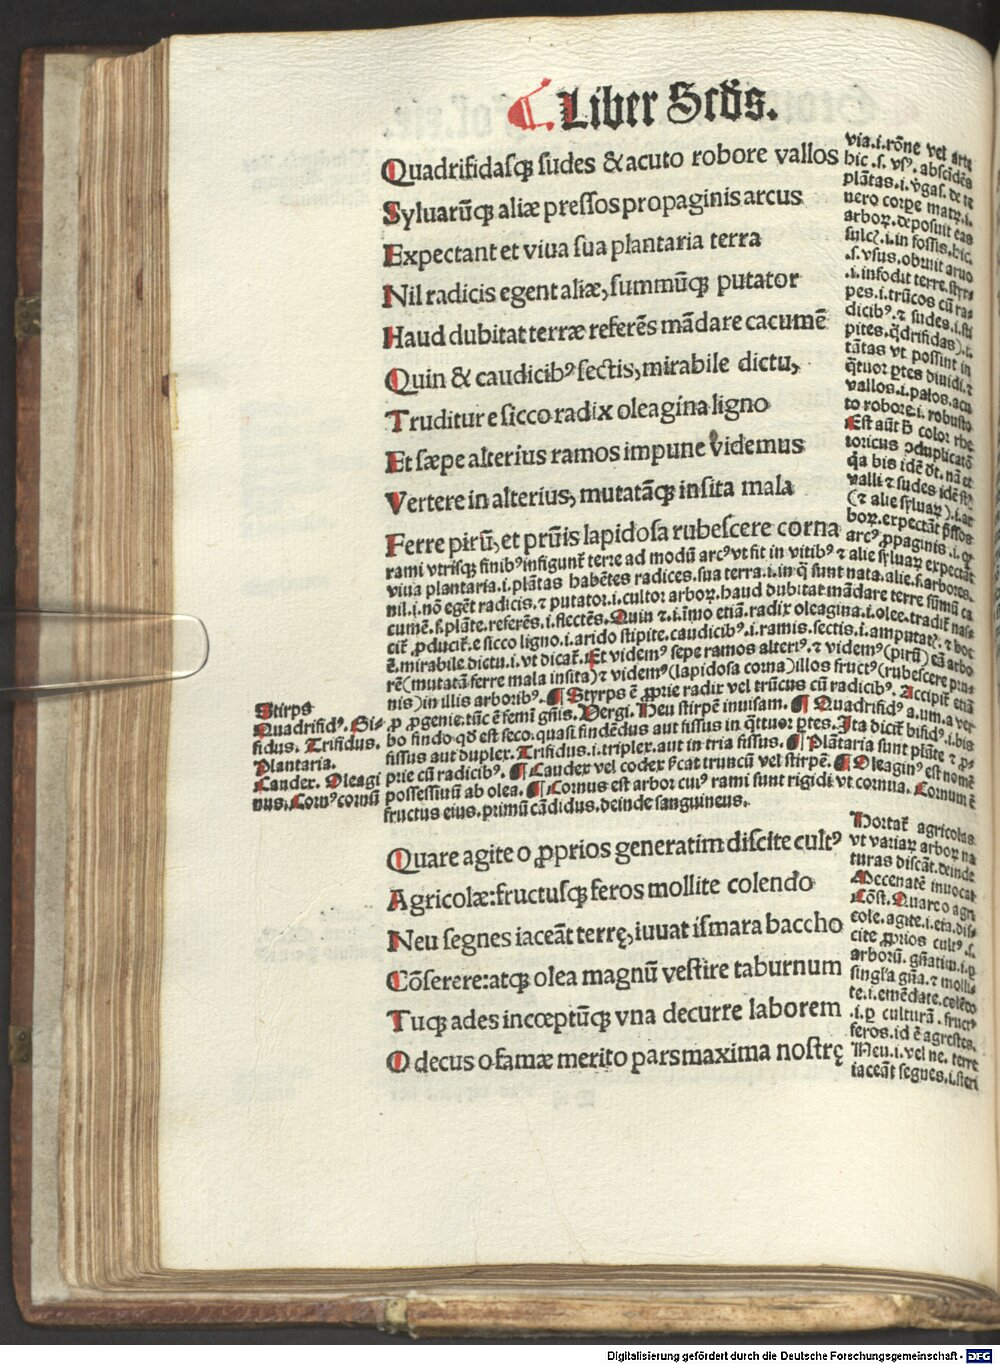 ⸿. Liber Scd̄s.
Quadrifidasqꝫ sudes & acuto robore vallos
Syluarūqꝫ aliæ pressos propaginis arcus
Expectant et viua sua plantaria terra
Nil radicis egent aliæ, summūqꝫ putator
Haud dubitat terræ referēs mādare cacumē
Quin & caudicibꝰ sectis, mirabile dictu,
Truditur e sicco radix oleagina ligno
Et sæpe alterius ramos impune videmus
Vertere in alterius, mutatāqꝫ insita mala
Ferre pirū, et prūis lapidosa rubescere corna
via .i. rōne vel arte
hic .s. vsꝰ. abscidēs
plātas .i. v̄gas. de te
nero corpe matꝝ .i.
arboꝝ. deposuit eas
sulcꝭ .i. in fossis. hic
.s. vsus. obruit aruo
.i. infodit terre. styr-
pes .i. trūcos cū ra-
dicibꝰ. ⁊ sudes .i. sti
pites. q̄drifidas) .i.
tātas vt possint in
q̄tuor ꝑtes diuidi. ⁊
vallos .i. palos. acu
to robore .i. robusto
Est aūt h̄ color rhe
toricus ꝯduplicatō
q̄a bis idē dr̄. nā et
valli ⁊ sudes idē st̄
(⁊ alie syluaꝝ) .i. ar
boꝝ. expectāt p̄ssos
arcꝰ ꝓpaginis .i. qꝫ
rami vtrisqꝫ finibꝰ infigunt̄ terre ad modū arcꝰ vt fit in vitibꝰ ⁊ alie syluaꝝ expectāt
viua plantaria .i. plātas habētes radices. sua terra .i. in q̄ sunt nata. alie .s. arbores.
nil .i. nō egēt radicis. ⁊ putator .i. cultor arboꝝ. haud dubitat mādare terre sūmū ca
cumē. s. plāte. referēs .i. flectēs. Quin ⁊ .i. imo etiā. radix oleagina .i. olee. tradit̄ nas-
cit̄ ꝓducit̄. e sicco ligno .i. arido stipite. caudicibꝰ .i. ramis. sectis .i. amputatꝭ. ⁊ hoc
ē. mirabile dictu .i. vt dicat̄. Et videmꝰ sepe ramos alteriꝰ. ⁊ videmꝰ (pirū) eā arbo
rē (mutatā ferre mala insita) ⁊ videmꝰ (lapidosa corna) illos fructꝰ (rubescere pru-
nis) in illis arboribꝰ. ¶ Styrps ē ꝓprie radix vel trūcus cū radicibꝰ. Accipit̄ etiā
ꝓ ꝓgenie. tūc ē femī gn̄is. Vergi. Heu stirpem inuisam. ¶ Quadrifidꝰ .a.um. a ver
bo findo qd̄ est seco. quasi findēdus aut fissus in q̄ttuor ꝑtes. Ita dicit̄ bifidꝰ .i. bis
fissus aut duplex. Trifidus .i. triplex. aut in tria fissus. ¶ Plātaria sunt plāte ⁊ ꝓ-
prie cū radicibꝰ. ¶ Caudex vel codex s̄cat truncū vel stirpē. ¶ Oleaginꝰ est nomē
possessiuū ab olea. ¶ Cornus est arbor cuiꝰ rami sunt rigidi vt cornua. Cornum ē
fructus eius. primū cādidus. deinde sanguineus.
Stirps
Quadrifidꝰ. Bi-
fidus. Trifidus.
Plantaria.
Caudex. Oleagi
nus. Cornꝰ cornū
Quare agite o ꝓprios generatim discite cultꝰ
Agricolæ: fructusqꝫ feros mollite colendo
Neu segnes iaceāt terrę, iuuat ismara baccho
Cōserere: atqꝫ olea magnū vestire taburnum
Tuqꝫ ades incœptūqꝫ vna decurre laborem
O decus o famæ merito pars maxima nostrę
Hortat̄ agricolas
vt variaꝝ arboꝝ na
turas discāt. deinde
Mecenatē inuocat
Cōst. Quare o agri
cole. agite .i. eia. dis-
cite ꝓprios cultꝰ .s.
arborū. gn̄atim .i. ꝑ
singl'a gn̄a. ⁊ molli-
te .i. emēdate. colēdo
.i. ꝑ culturā. fructꝰ
feros. id ē agrestes.
Neu .i. vel ne. terre
iaceāt segnes .i. steri
Digitalisierung gefördert durch die Deutsche Forschungsgemeinschaft - DFG